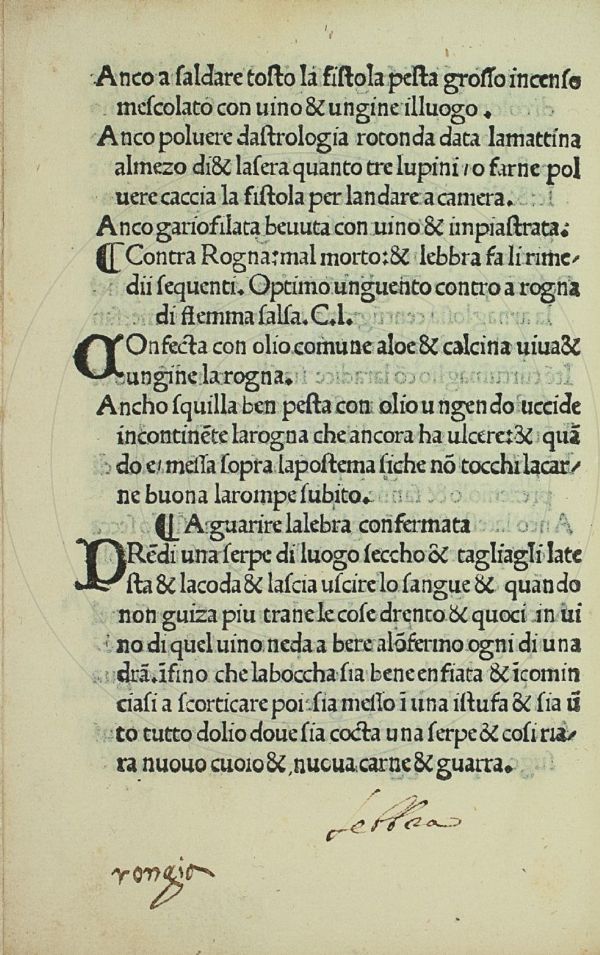 Anco a ſaldare toſto la fiſtola peſta groſſo incenſo
meſcolato con uino & ungine illuogo .
Anco poluere daſtrologia rotonda data lamattina
almezo di& laſera quanto tre lupini / o farne pol
uere caccia la fiſtola per landare a camera.
Anco gariofilata beuuta con uino & impiaſtrata:
¶ Contra Rogna:mal morto:& lebbra fa li rime/
dii ſequenti. Optimo unguento contro a rogna
di flemma ſalſa. C.I.
COnfecta con olio comune aloe & calcina uiua&
ungine la rogna.
Ancho ſquilla ben peſta con olio u ngen do uccide
incontinẽte larogna che ancora ha ulcere:& quã
do e/ meſſa ſopra lapoſtema ſiche nõ tocchi lacar/
ne buona larompe ſubito.
¶ A guarire lalebra confermata
PRẽdi una ſerpe di luogo ſeccho & tagliagli late
ſta & lacoda & laſcia uſcire lo ſangue & quando
non guiza piu trane le coſe drento & quoci in ui
no di quel uino neda a bere alõfermo ogni di una
drã. ĩfino che laboccha ſia bene enfiata & ĩcomin
ciaſi a ſcorticare poi ſia meſſo ĩ una iſtufa & ſia ũ
to tutto dolio doue ſia cocta una ſerpe & coſi ria/
ra nuouo cuoio & nuoua carne & guarra.
lebbra